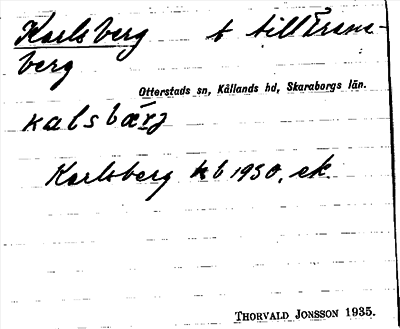 Karlsberg t till Frams-
berg
Otterstads sn, Kållands hd, Skaraborgs län.
kalsbærj
Karlsberg kb 1930, ek.
THORVALD JONSSON 1935.